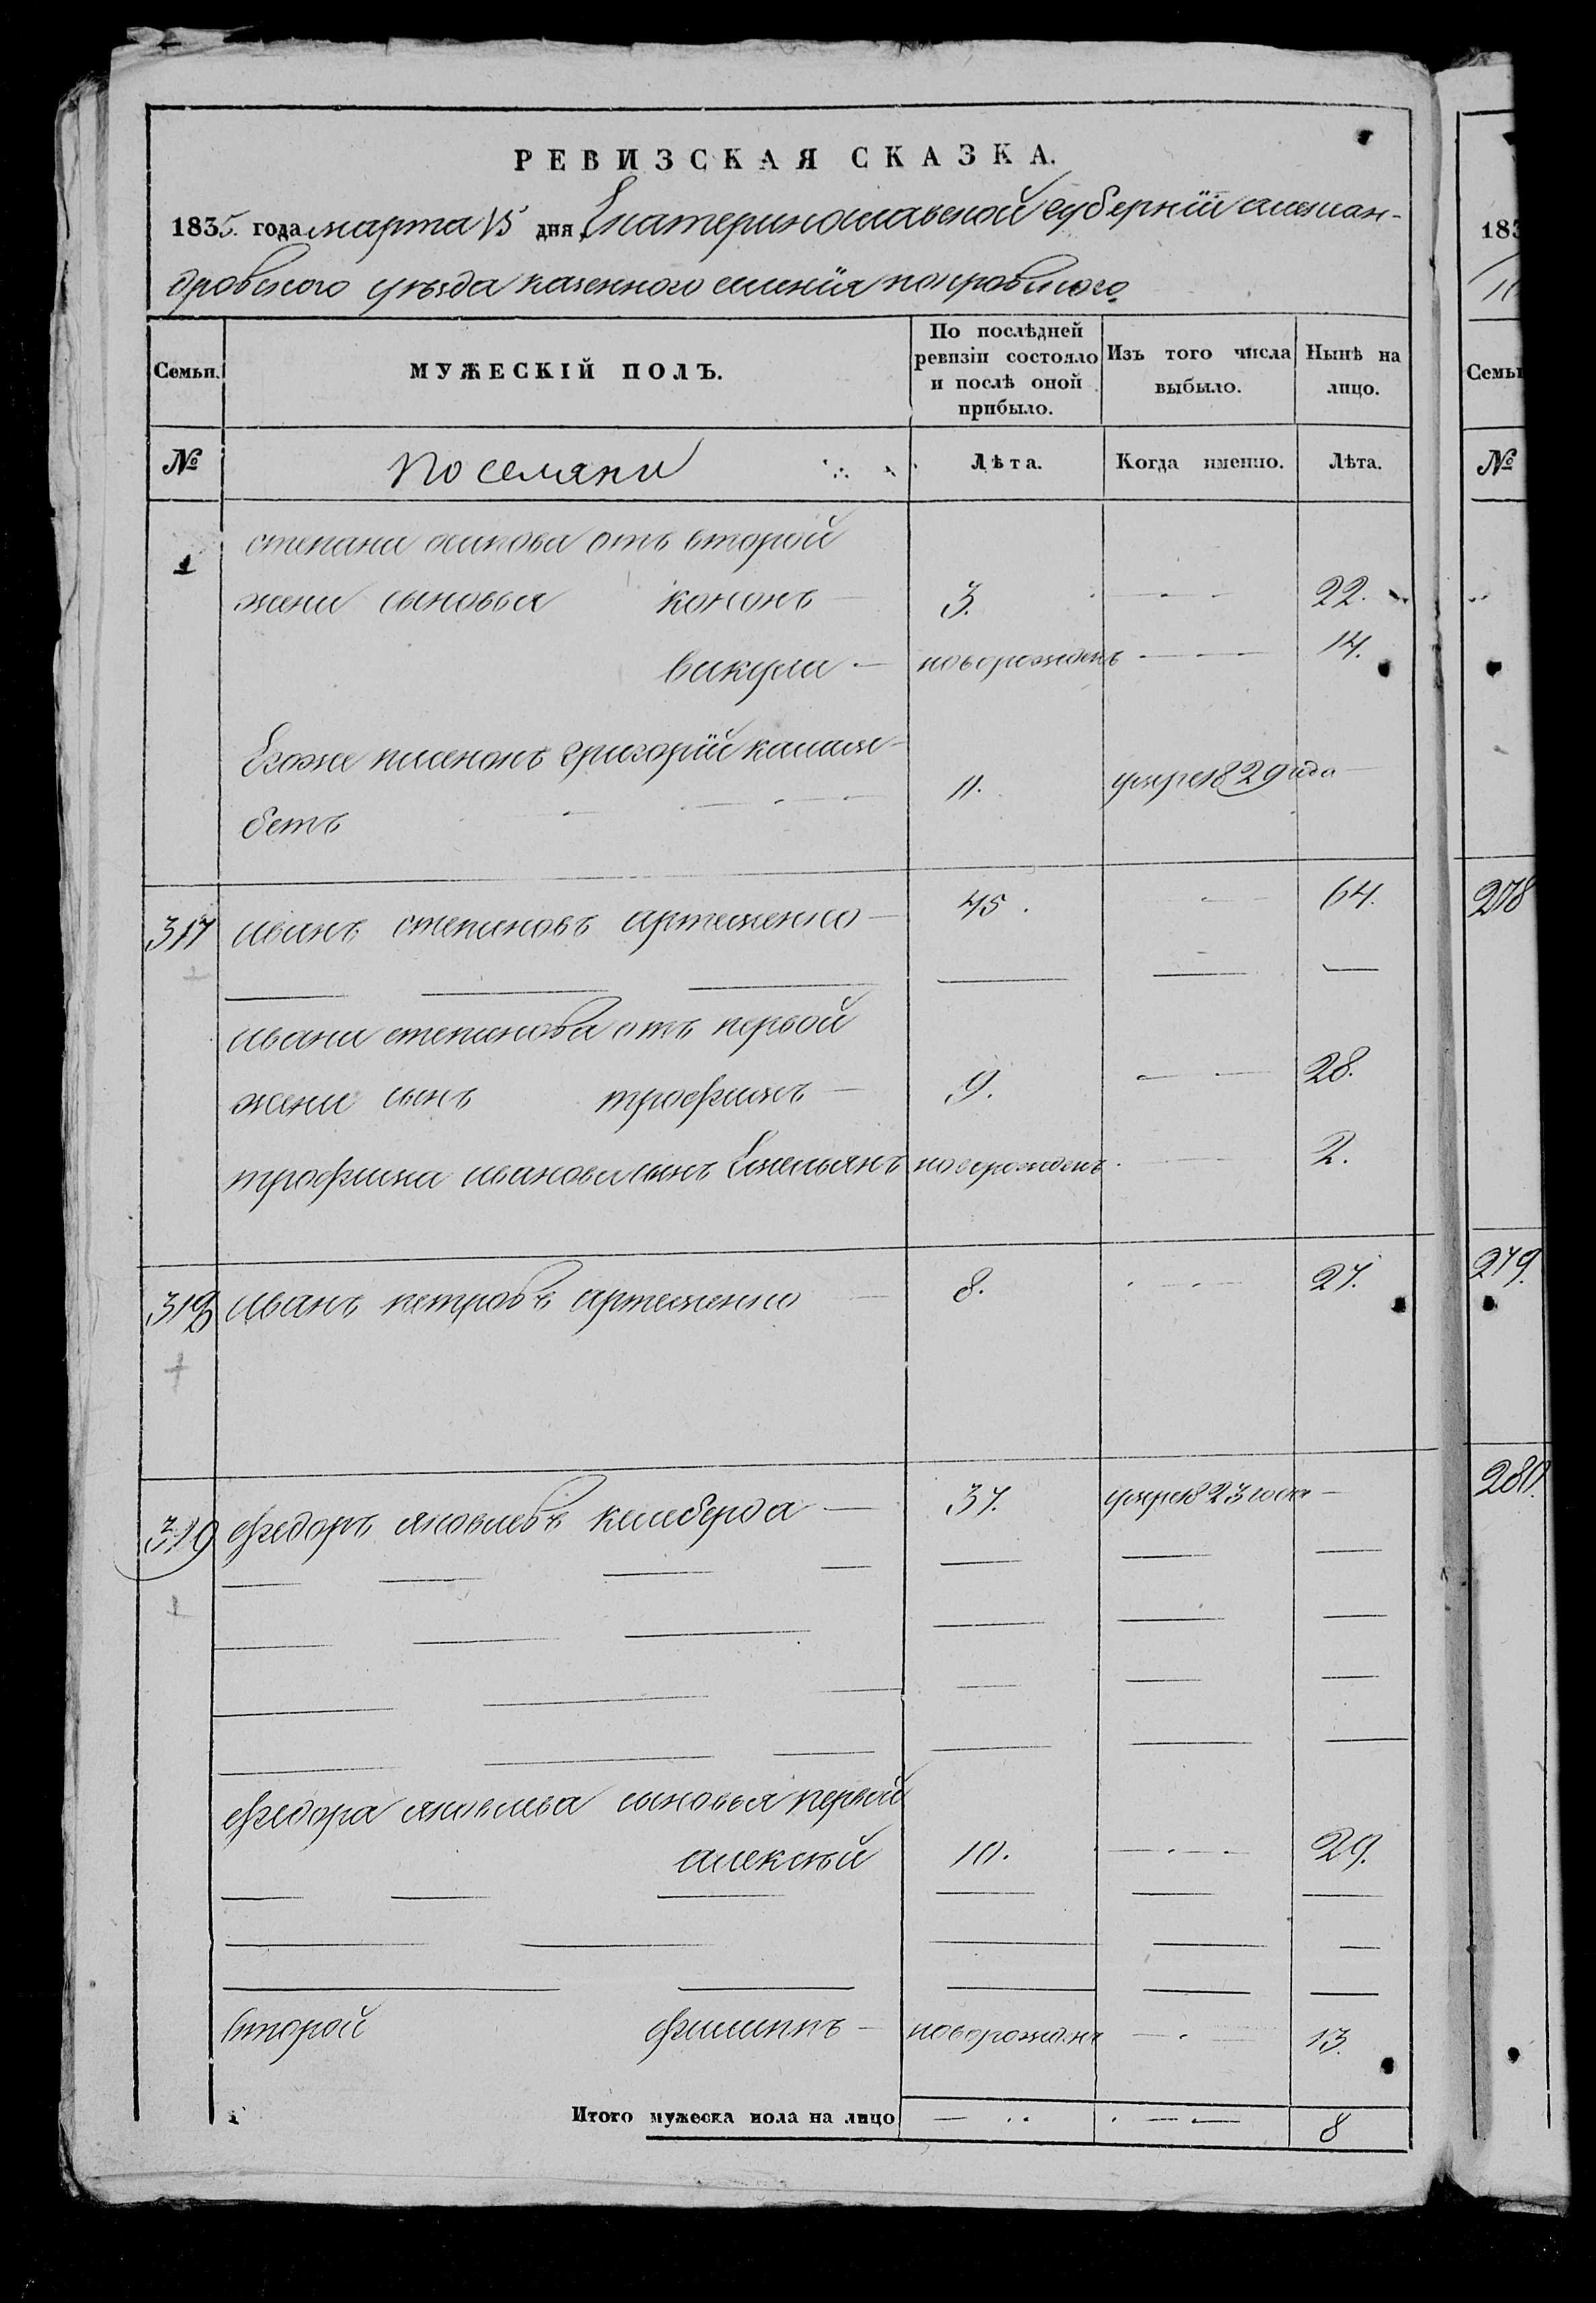 РЕВИЗСКАЯ СКАЗКА.
1835. года марта 15 дня Екатеринославской губернїи алексан-
дровского уезда казенного селенїя покровского
Семьи. МУЖЕСКІЙ ПОЛЪ. По послѣдней ревизіи состояло и послѣ оной прибыло. Изъ того числа выбыло. Нынѣ на лицо.
№ поселяни Лѣта. Когда именно. Лѣта.
степана осипова отъ второй
жени сыновья кононъ 3. 22.
вакула новорожденъ 14.
Егоже племенъ григорїй калам-
бетъ 11. умре 1829 года
317 иванъ степановъ артеменко 45. 64.
ивана степанова отъ первой
жени сынъ трофимъ 9. 28.
трофима иванова сынъ Емельянъ новорожденъ 2.
318 иванъ петровъ артеменко 8. 27.
319 федоръ яковлевъ келеберда 37. умре 1823 года
федора яковлева сыновья первой
алексѣй 10. 29.
второй филиппъ новорожденъ 13.
Итого мужеска пола на лицо 8
183
Семьи
№
278
279.
280.